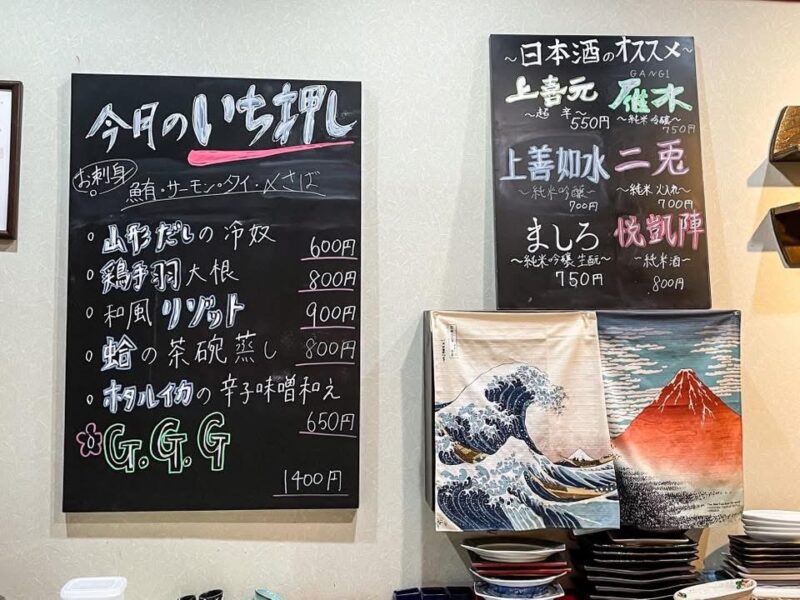 今月のいち押し
お刺身
鮪・サーモン・タイ・〆さば
山形だしの冷奴 600円
鶏手羽大根 800円
和風リゾット 900円
蛤の茶碗蒸し 800円
ホタルイカの辛子味噌和え
650円
G.G.G
1400円
〜日本酒のオススメ〜
上喜元
〜超 辛〜
550円
GANGI
雁木
〜純米吟醸〜
750円
上善如水
〜純米吟醸〜
700円
二兎
〜純米 火入れ〜
700円
ましろ
〜純米吟醸 生酛〜
750円
悦凱陣
〜純米酒〜
800円